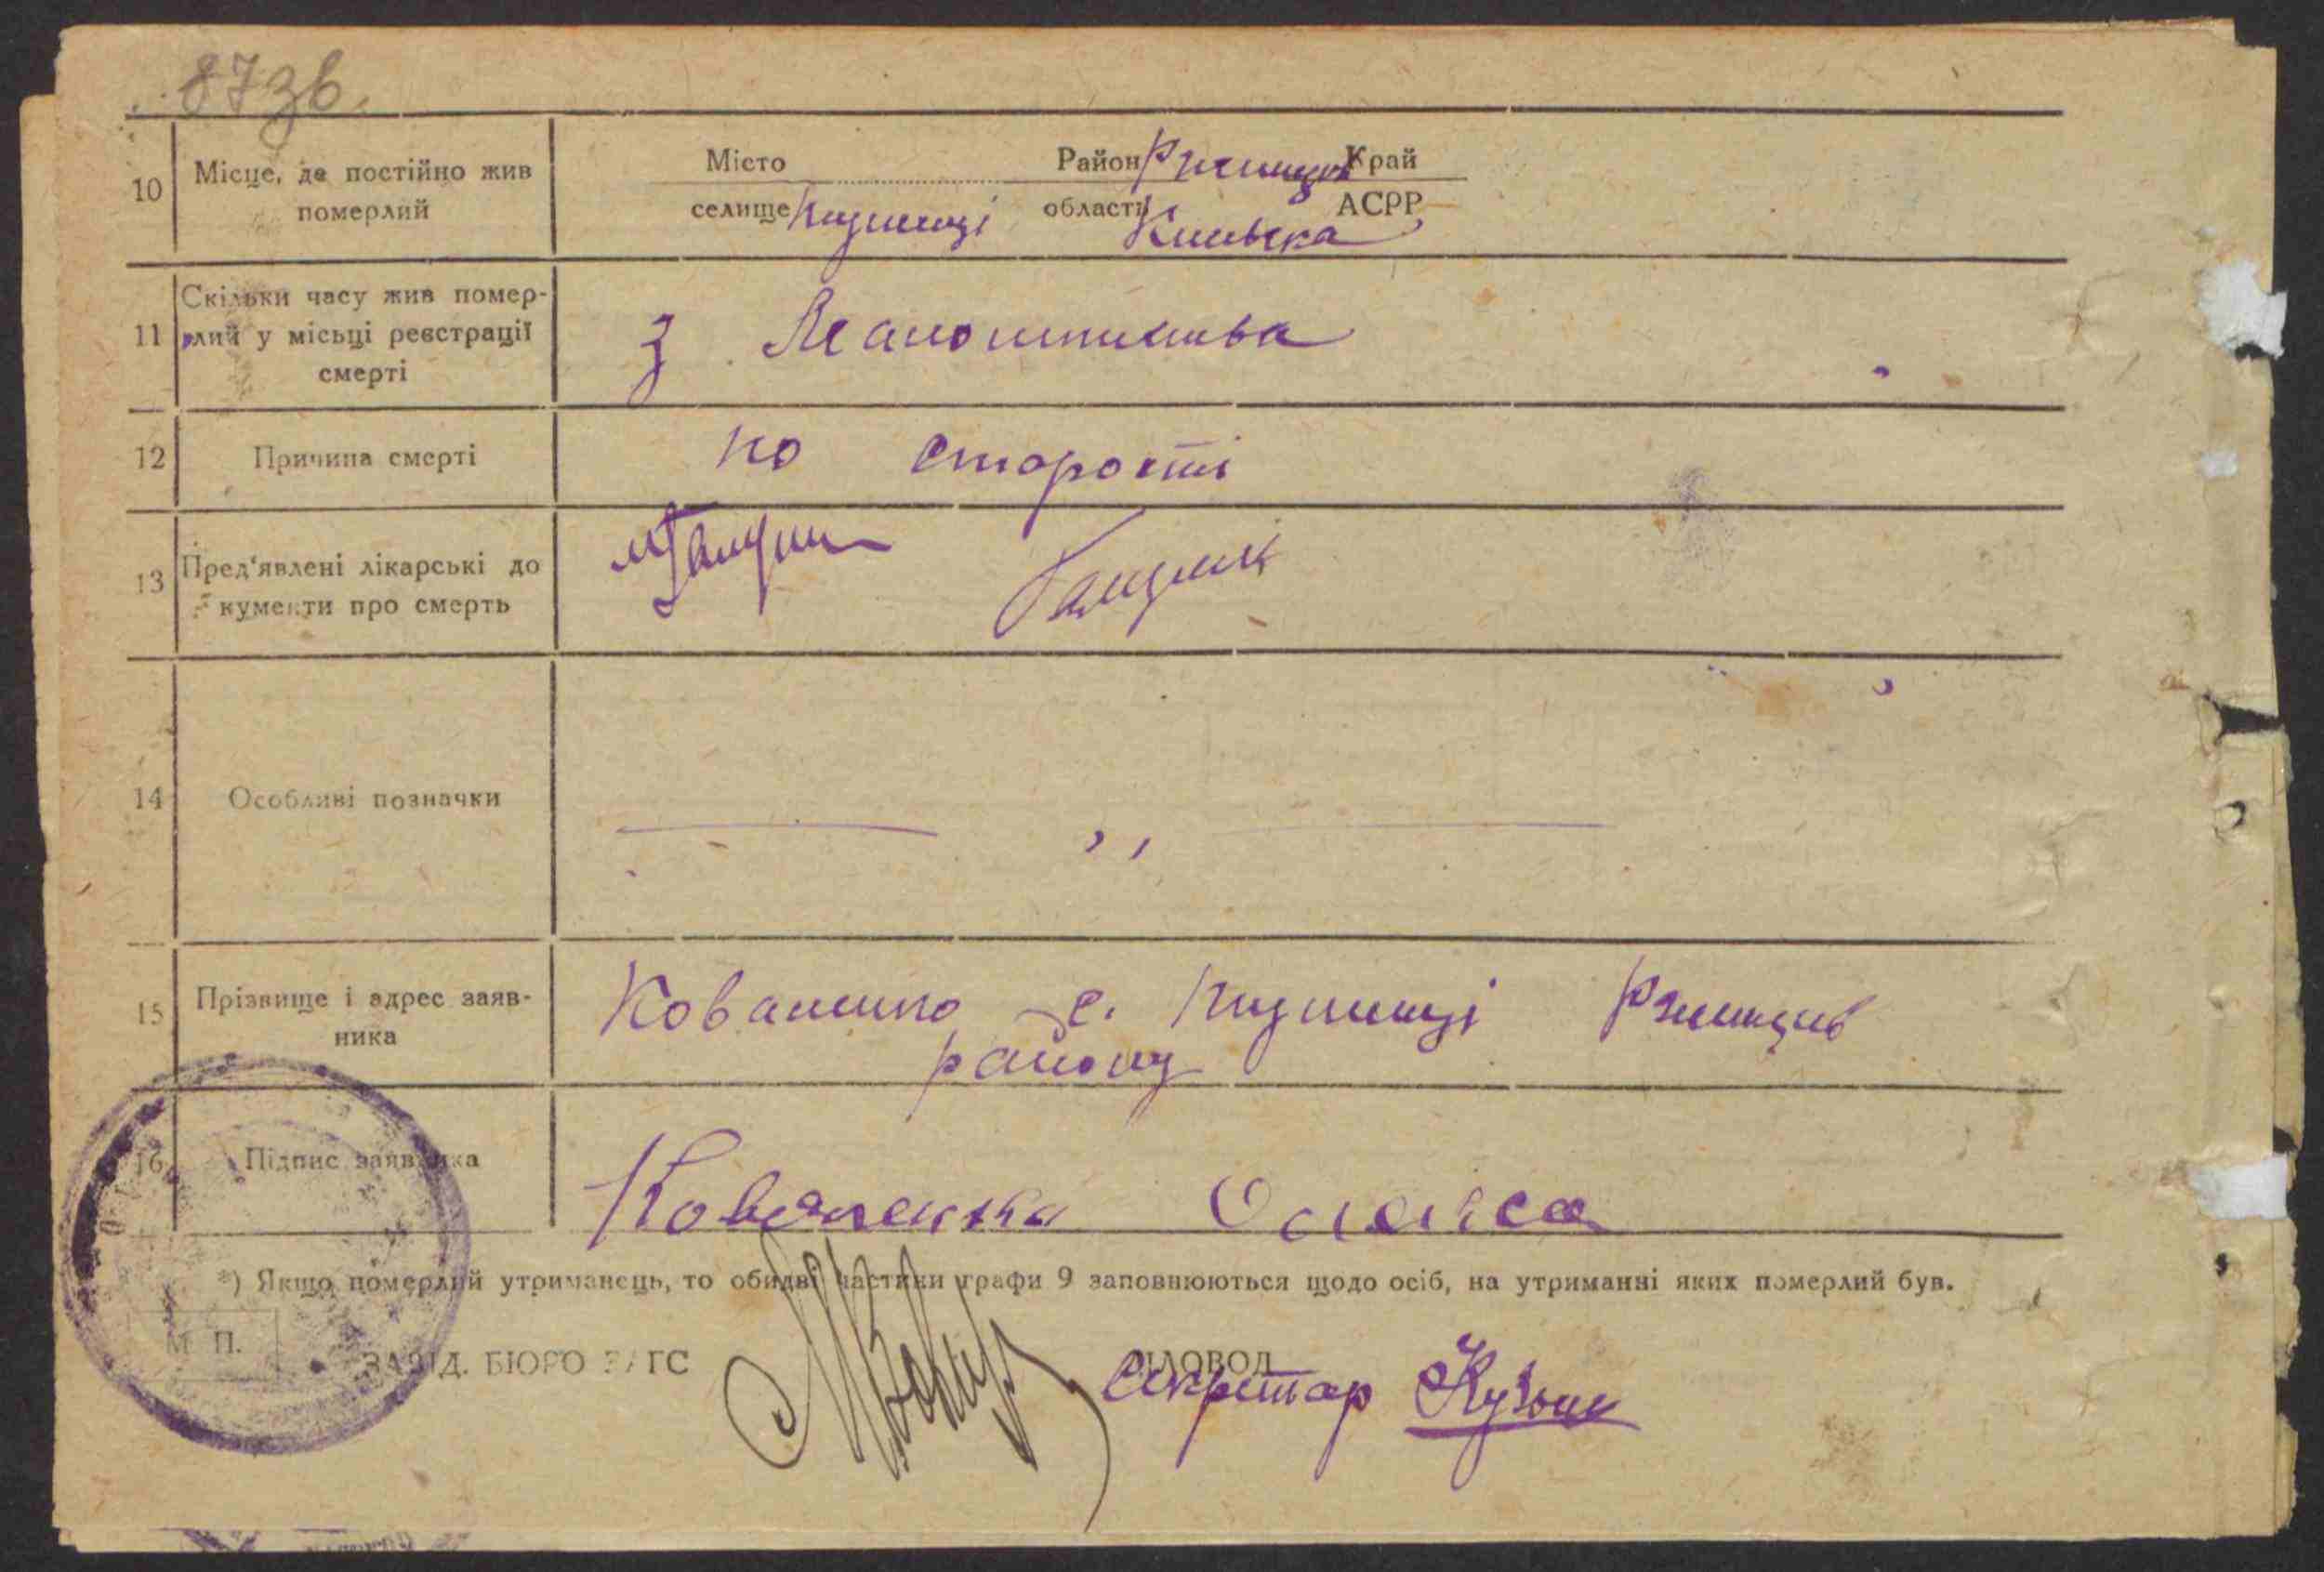 87зв.
10 Місце, де постійно жив померлий
Місто Район Ржищів Край
селище області Київська АСРР
11 Скільки часу жив помер-
лий у місьці реєстрації
смерті
З Малолітства
12 Причина смерті
по старості
13 Пред'явлені лікарські до
кументи про смерть
14 Особливі позначки
" 
15 Прізвище і адрес заяв-
ника
Коваленко с. Ржищів
району
16 Підпис заявника
Коваленко
*) Якщо померлий утриманець, то обидві частини графи 9 заповнюються щодо осіб, на утриманні яких померлий був.
М П.
ЗАВІД. БЮРО ЗАГС
ДІЛОВОД
секретар